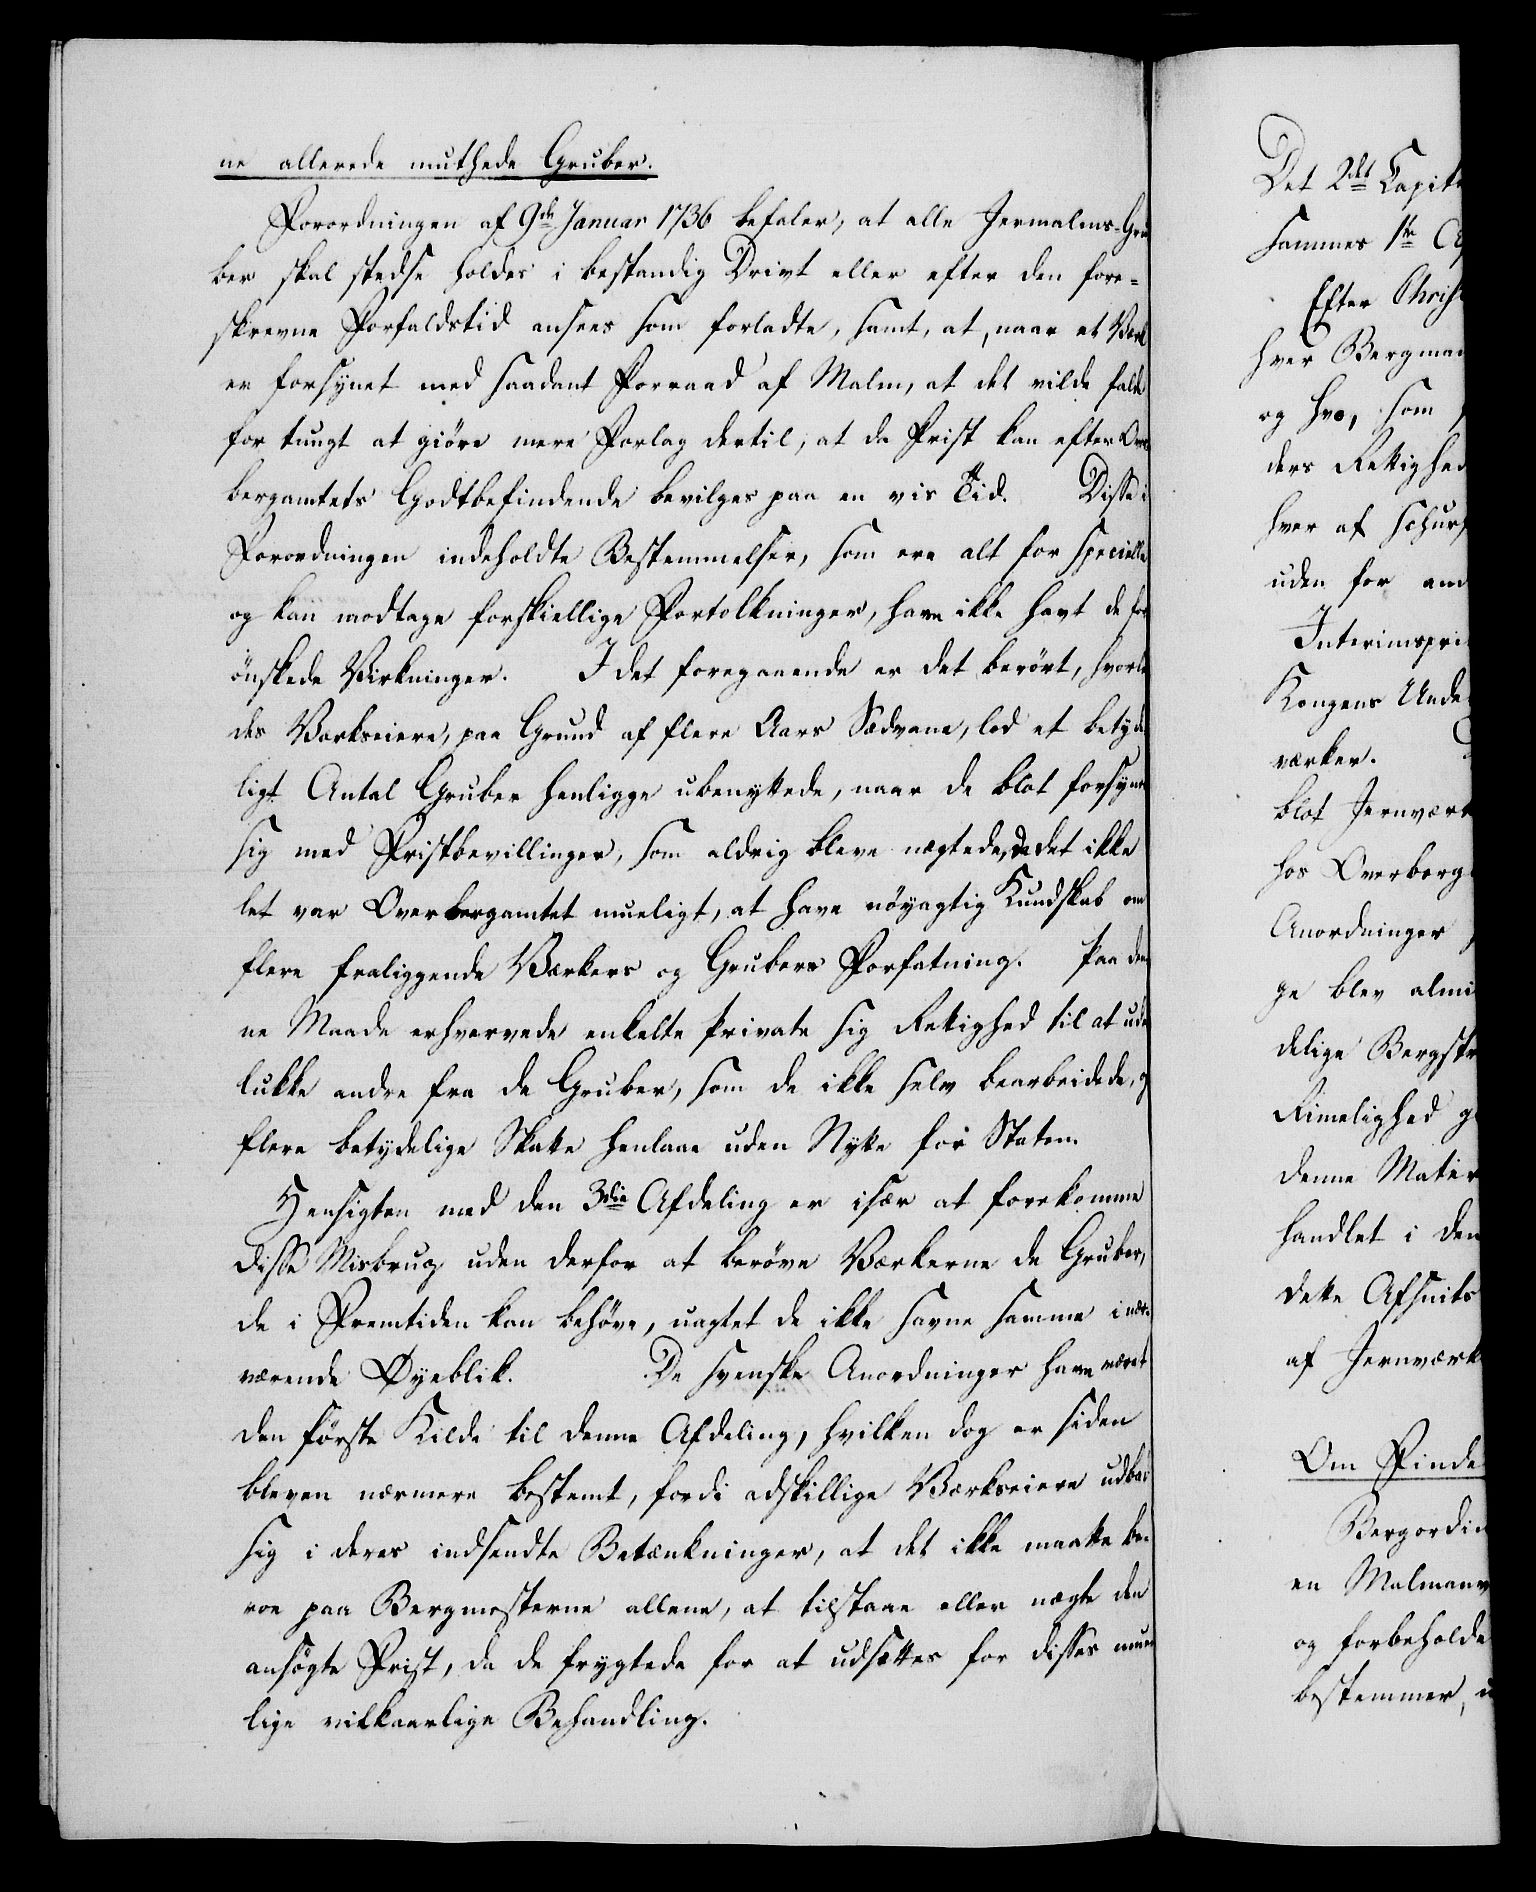 ne allerede muthede Gruber.
Forordningen af 9de Januar 1736 befaler, at alle Jernmalms-Gru
ber skal stedse holdes i bestandig Drivt eller efter den fore-
skrevne Forfaldstid ansees som forladte, samt, at, naar et Værk
er forsynet med saadant Forraad af Malm, at det vilde falde
for tungt at giöre mere Forlag dertil, at da Frist kan efter Over
bergamtets Godtbefindende bevilges paa en vis Tid. Disse i
Forordningen indeholdte Bestemmelser, som ere alt for specielle
og kan modtage forskiellige Fortolkninger, have ikke havt de for
önskede Virkninger. I det foregaaende er det berört, hvorle
des Værkseiere, paa Grund af flere Aars Sædvane, lod et betyde
ligt Antal Gruber henligge ubenyttede, naar de blot forsynte
sig med Fristbevillinger, som aldrig bleve nægtede, da det ikke
let var Overbergamtet mueligt, at have nöyagtig Kundskab om
flere fraliggende Værkers og Grubers Forfatning. Paa den
ne Maade erhvervede enkelte Private sig Rettighed til at ude
lukke andre fra de Gruber, som de ikke selv bearbeidede, og
flere betydelige Skatte henlaae uden Nytte for Staten.
Hensigten med den 3die Afdeling er især at forekomme
disse Misbrug uden derfor at beröve Værkerne de Gruber,
de i Fremtiden kan behöve, uagtet de ikke savne samme i nær-
værende Øyeblik. De svenske Anordninger have været
den förste Kilde til denne Afdeling, hvilken dog er siden
bleven nærmere bestemt, fordi adskillige Værkseiere udbad
sig i deres indsendte Betænkninger, at det ikke maatte be-
roe paa Bergmesterne allene, at tilstaae eller nægte den
ansögte Frist, da de frygtede for at udsættes for disses mue
lige vilkaarlige Behandling.
Det 2det Capit
sammes 1ste
Efter Chris
hver Bergman
og hvo, som
ders Rettighed
hver af Schurf
uden for
Interimspri
Kongens Unde
værker.
blot Jernværk
hos Overberg
Anordninger
ge blev almi
delige Bergst
Rimelighed
denne Mater
handlet i den
dette Afsnits
af Jernværk
Om Finde
Bergordi
en Malmanv
og forbeholde
bestemmer,